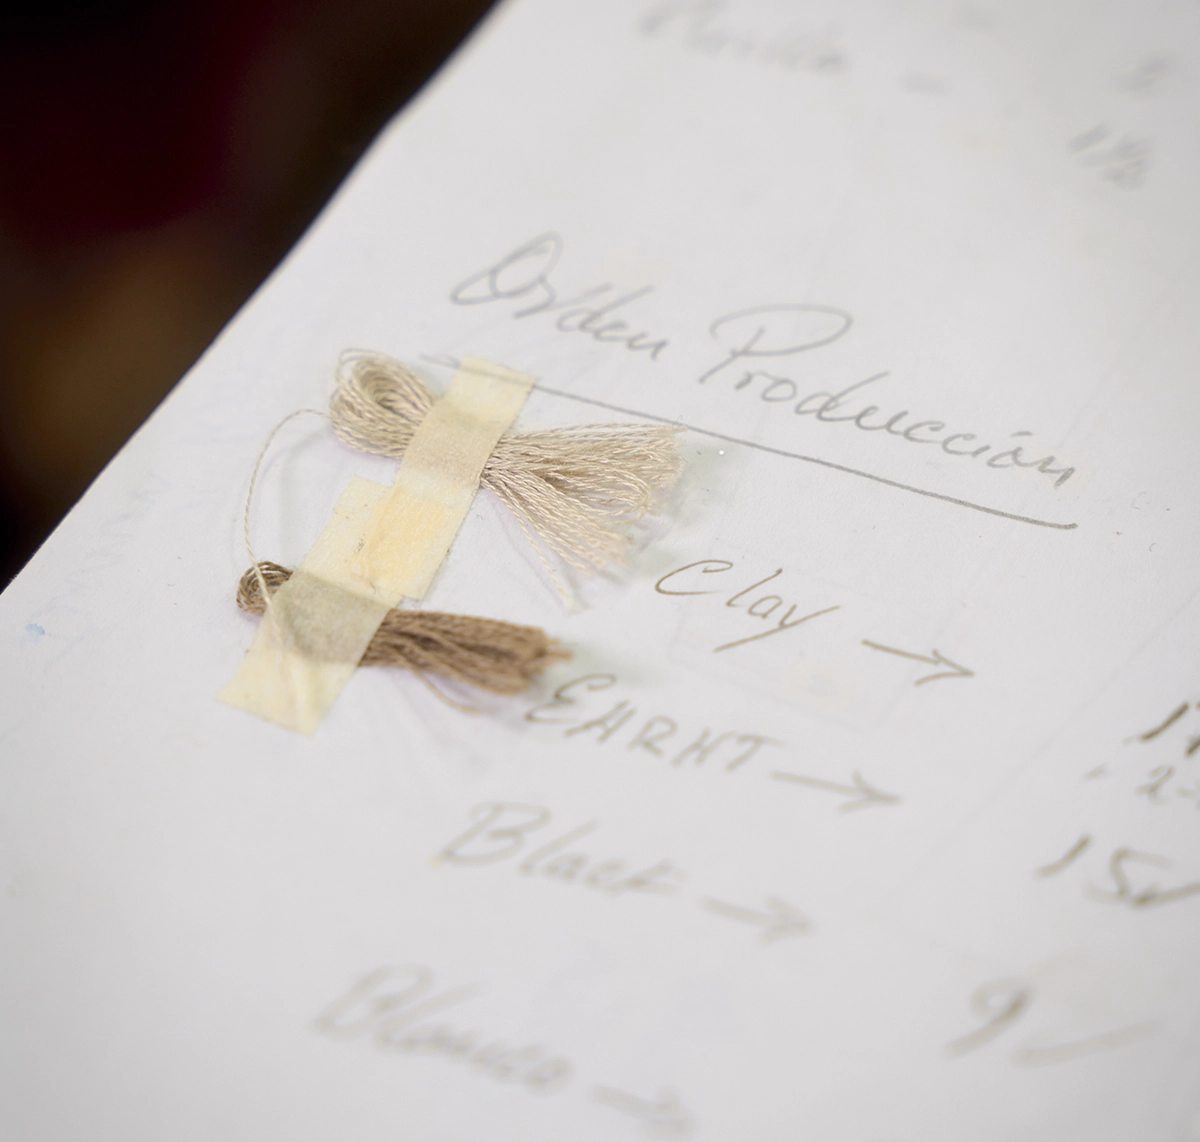 1 1/2
Orden Producción
Clay →
EARHT →
2-
Black → 15✓
Blanco → 9✓